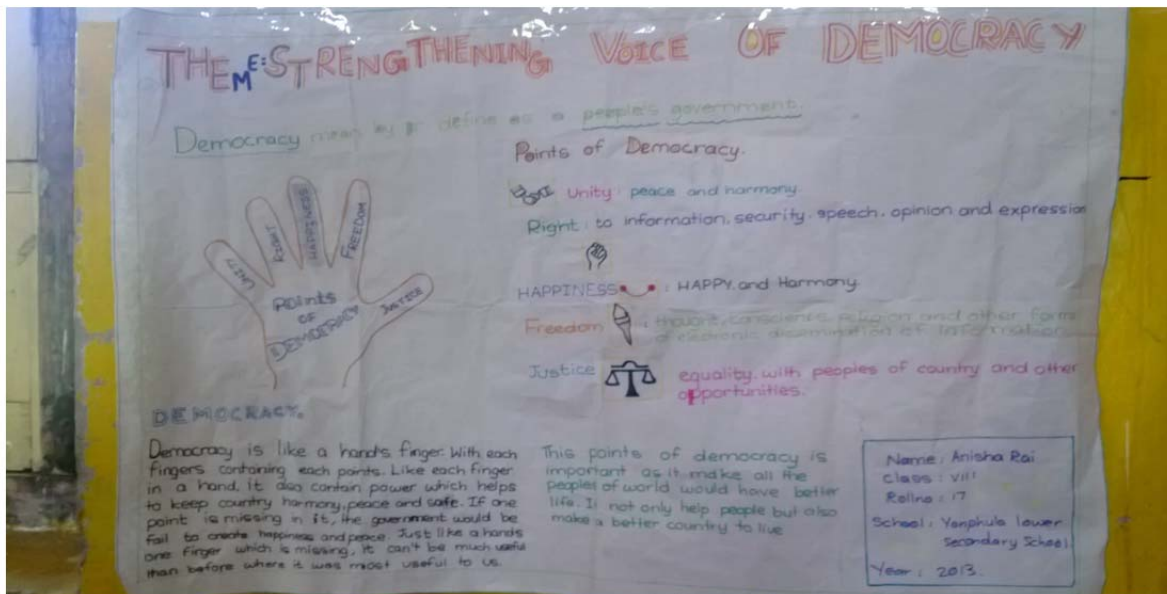 THEME: STRENGTHENING VOICE OF DEMOCRACY
Democracy mean by or define as a people's government.
Points of Democracy.
UNITY
RIGHT
HAPPINESS
FREEDOM
JUSTICE
POINTS
OF
DEMOCRACY
Unity : peace and harmony
Right : to information, security, speech, opinion and expression
HAPPINESS : HAPPY and Harmony
Freedom : thought, conscience, religion and other form
of electronic dissemination of information
Justice equality with peoples of country and other
opportunities.
DEMOCRACY.
Democracy is like a hand's finger. With each
fingers containing each points. Like each finger
in a hand, it also contain power which helps
to keep country harmony, peace and safe. If one
point is missing in it, the government would be
fail to create happiness and peace. Just like a hands
one finger which is missing, it can't be much useful
than before where it was most useful to us.
This points of democracy is
important as it make all the
peoples of world would have better
life. It not only help people but also
make a better country to live
Name : Anisha Rai
Class : VIII
Rollno : 17
School : Yonphula lower
Secondary School
Year : 2013.